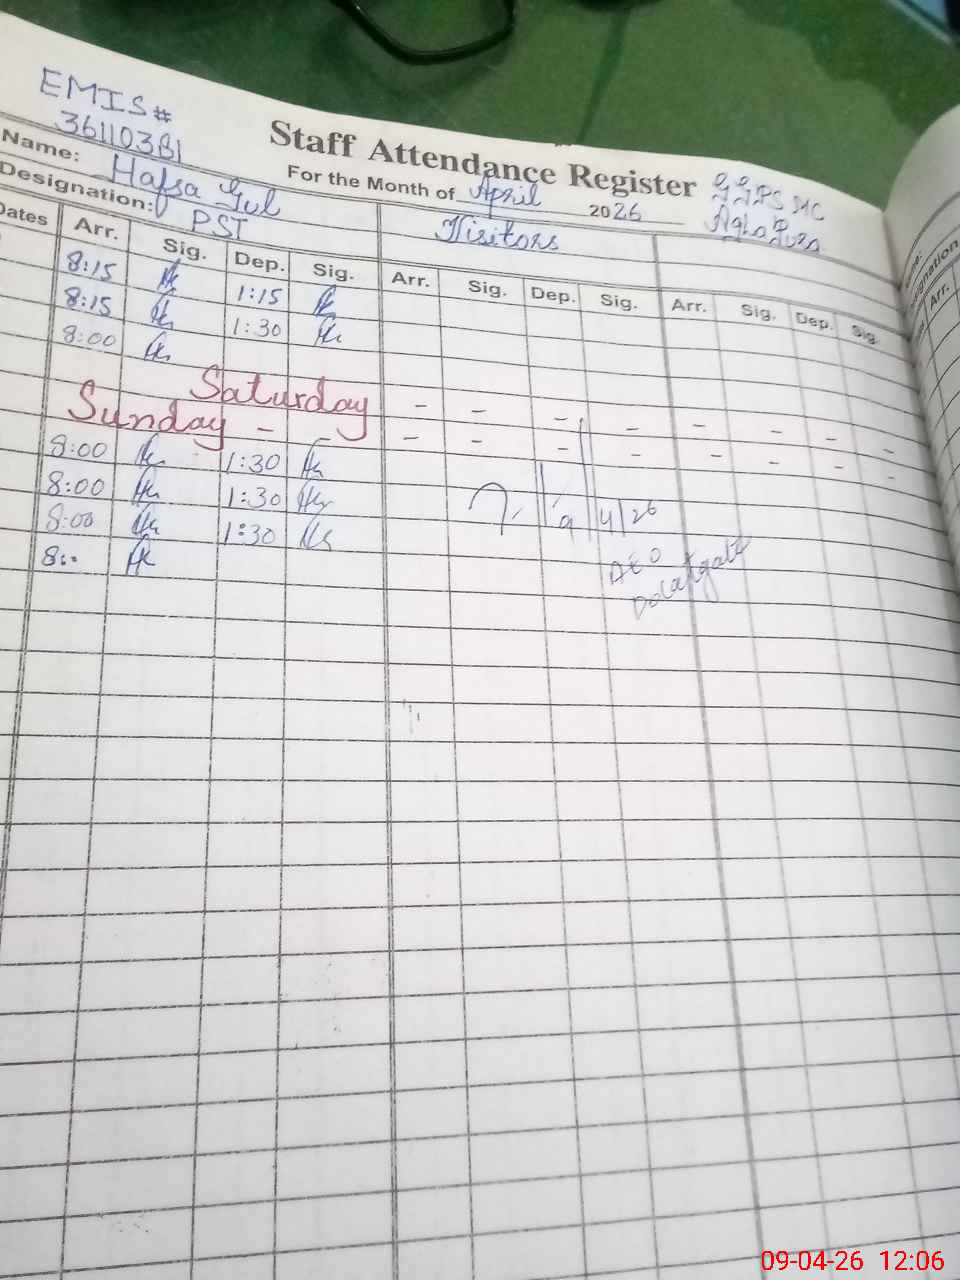 EMIS#
36110381
Staff Attendance Register
Name: Hafsa Gul
For the Month of April 2026
GGPS MC
Designation: PST
Visitors
Dates Arr. Sig. Dep. Sig. Arr. Sig. Dep. Sig. Arr. Sig. Dep. Sig.
8:15 1:15
8:15 1:30
8:00
Saturday - - - - - - - -
Sunday - - - - - - - - - -
8:00 1:30
8:00 1:30
8:00 1:30
9/4/26
8:..
AEO
Arr.
09-04-26 12:06